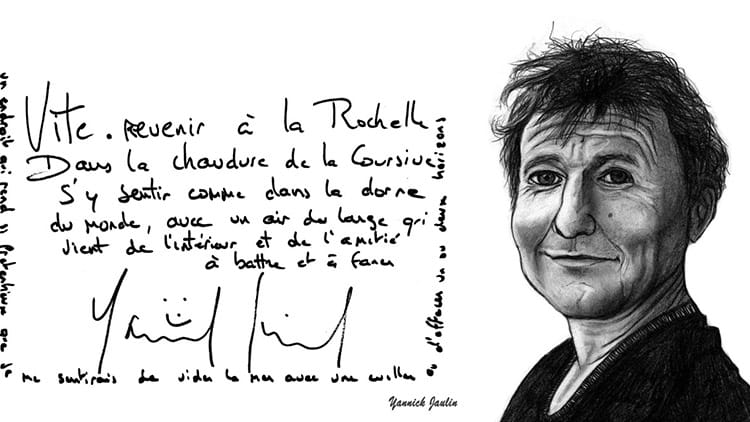 Vite. Revenir à la Rochelle
Dans la chaudure de la Coursive
S'y sentir comme dans la dorne
du monde, avec un air du large qui
vient de l'intérieur et de l'amitié
à battre et à faner
un endroit qui rend si que je
me sentirais de vider la mer avec une cuillère
ou d'effacer un ou deux horizons
Yannick Jaulin